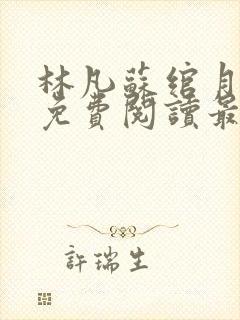 林凡蘇綰月
免費閱讀最
許瑞生